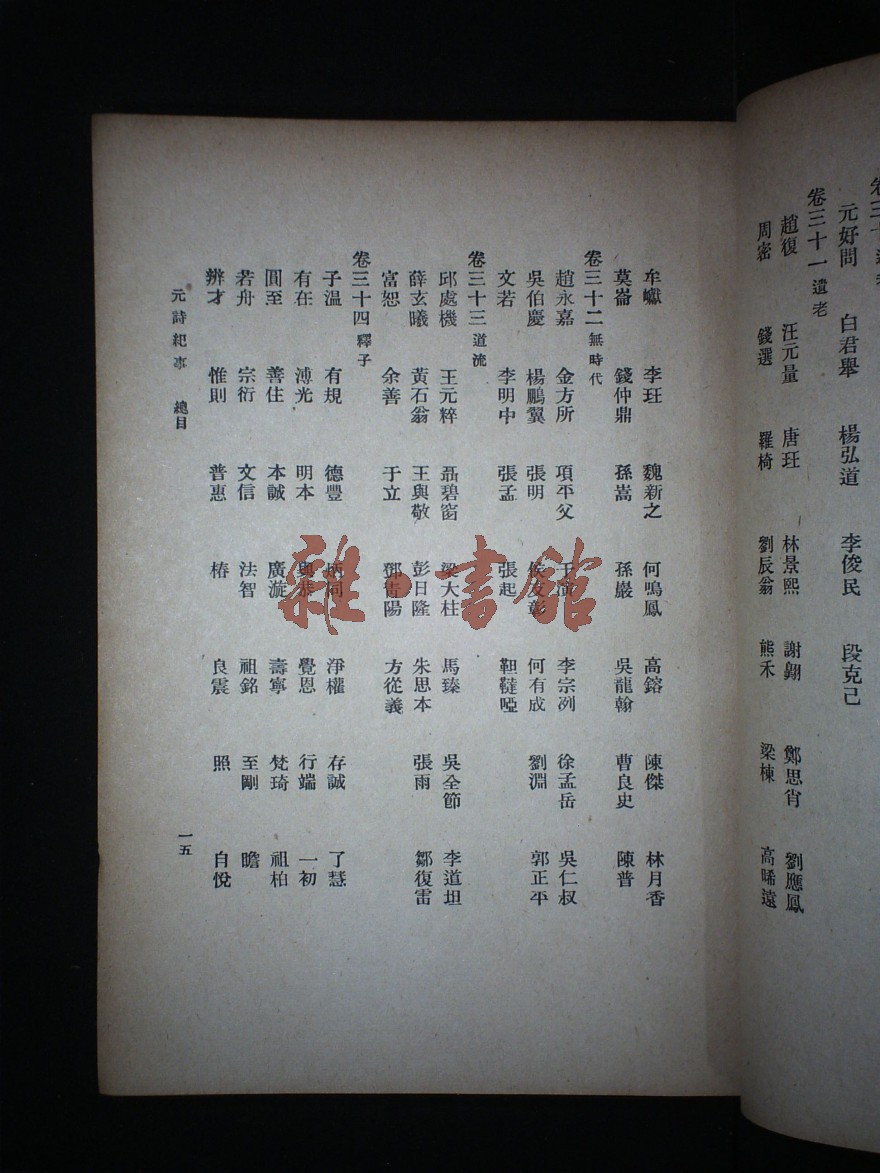 元好問 白君舉 楊弘道 李俊民 段克己
卷三十一 遺老
趙復 汪元量 唐珏 林景熙 謝翱 鄭思肖 劉應鳳
周密 錢選 羅椅 劉辰翁 熊禾 梁棟 高晞遠
牟巘 李珏 魏新之 何鳴鳳 高鎔 陳傑 林月香
莫崙 錢仲鼎 孫嵩 孫巖 吳龍翰 曹良史 陳普
卷三十二 無時代
趙永嘉 金方所 項平父 王演 李宗冽 徐孟岳 吳仁叔
吳伯慶 楊鵬翼 張明 侯友彰 何有成 劉淵 郭正平
文若 李明中 張孟 張起 靼韃啞
卷三十三 道流
邱處機 王元粹 聶碧窗 梁大柱 馬臻 吳全節 李道坦
薛玄曦 黃石翁 王與敬 彭日隆 朱思本 張雨 鄒復雷
富恕 余善 于立 鄧青陽 方從義
卷三十四 釋子
子溫 有規 德豐 炳同 淨權 存誠 了慧
有在 溥光 明本 與恭 覺恩 行端 一初
圓至 善住 本誠 廣漩 壽寧 梵琦 祖柏
若舟 宗衍 文信 法智 祖銘 至剛 瞻
辨才 惟則 普惠 椿 良震 照 自悅
元詩紀事 總目 一五
雜·書館